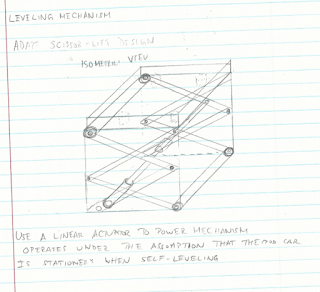 LEVELING MECHANISM
ADAPT SCISSOR-LIFT DESIGN
ISOMETRIC VIEW
USE A LINEAR ACTUATOR TO POWER MECHANISM
OPERATES UNDER THE ASSUMPTION THAT THE CAR
IS STATIONERY WHEN SELF-LEVELING